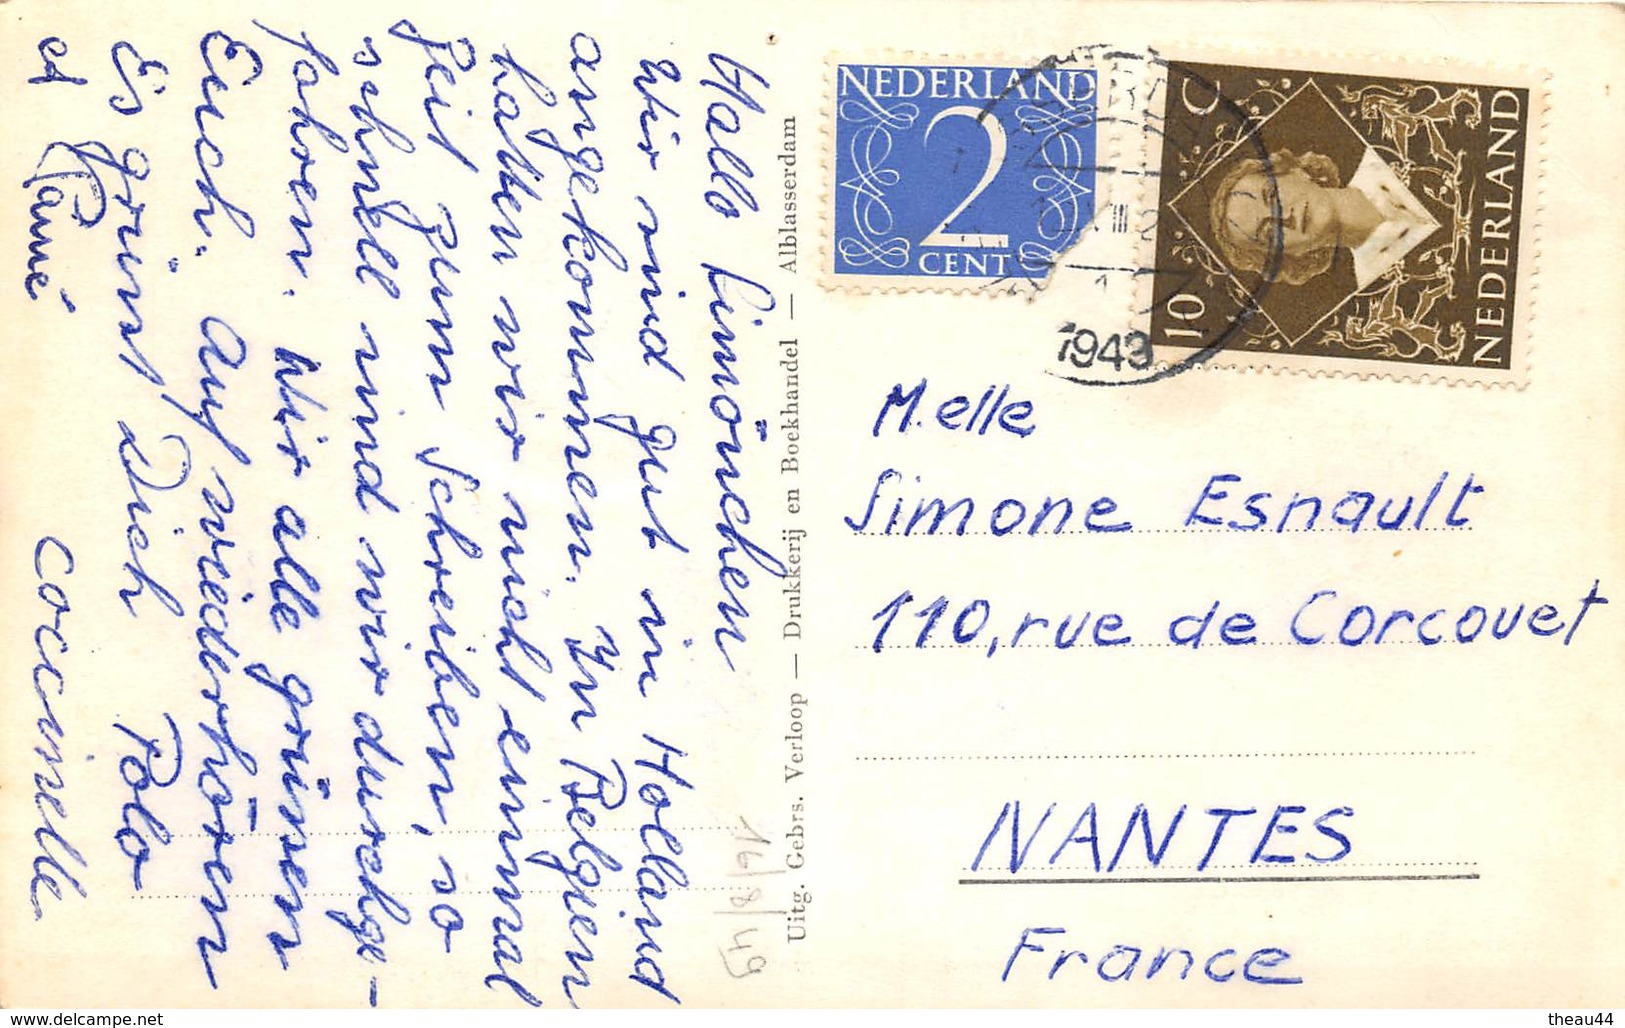 Hallo Simönchen
Wir sind gut in Holland
angekommen. In Belgien
hatten wir nicht einmal
Zeit zum Schreiben, so
schnell sind wir durchge-
fahren. Wir alle grüssen
Euch. Auf wiederhören
Es grüsst Dich Polo
et Coccinelle
16/8/49
Uitg. Gebrs. Verloop — Drukkerij en Boekhandel — Alblasserdam
NEDERLAND
2
CENT
10 C
NEDERLAND
1949
M.elle
Simone Esnault
110, rue de Corcouet
NANTES
France
www.delcampe.net
theau44